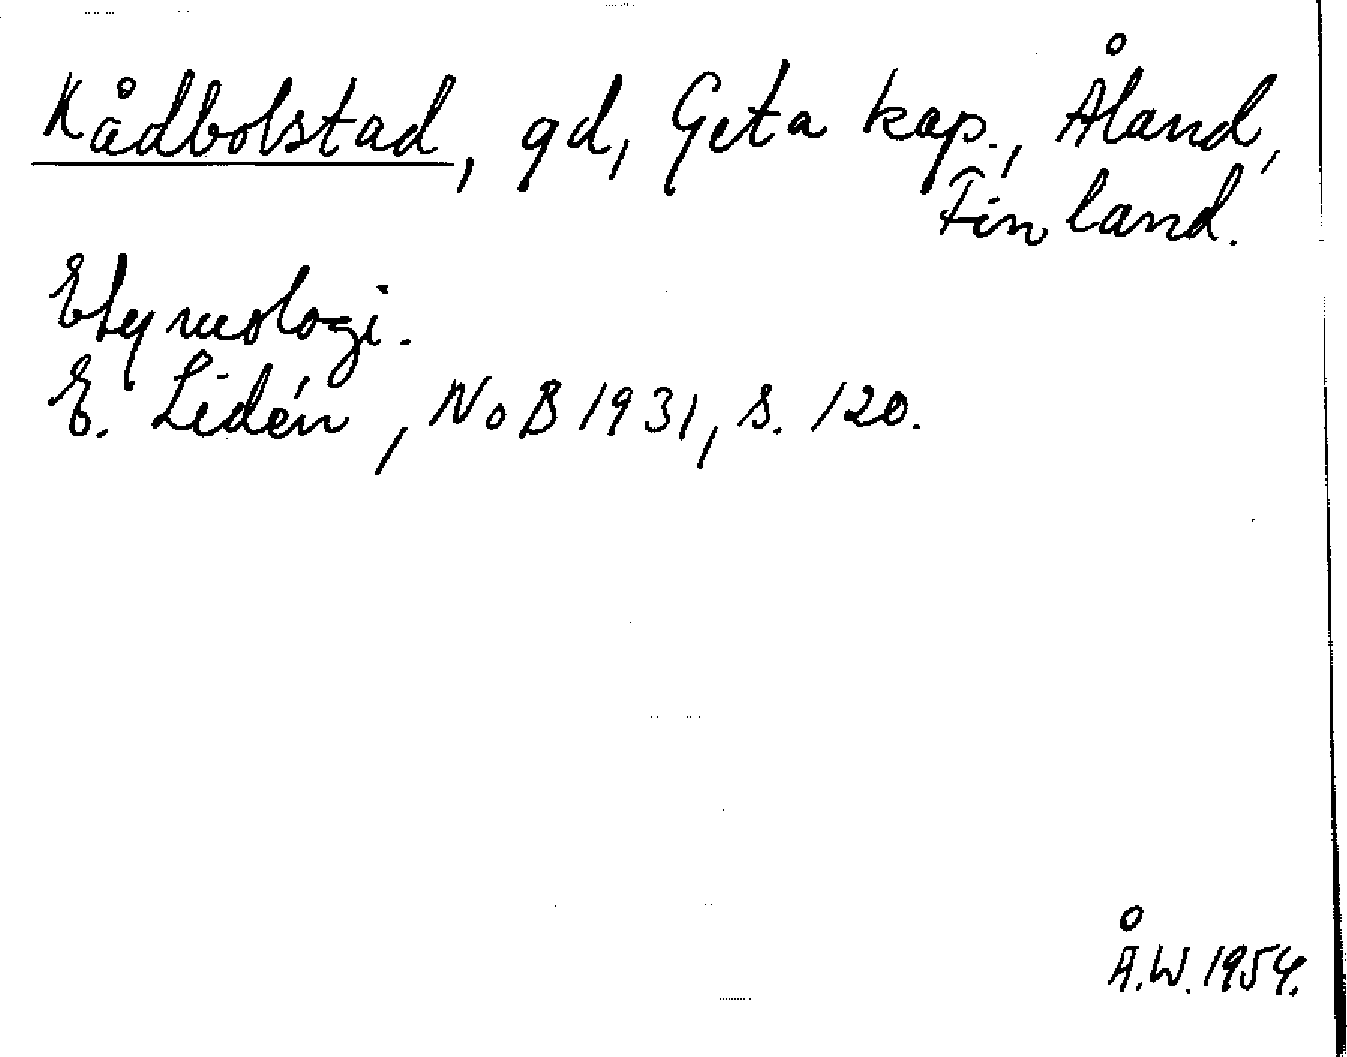 Kådbolstad, gd, Geta kap., Åland,
Finland.
Etymologi.
E. Lidén, NoB 1931, s. 120.
Å.W. 1954.